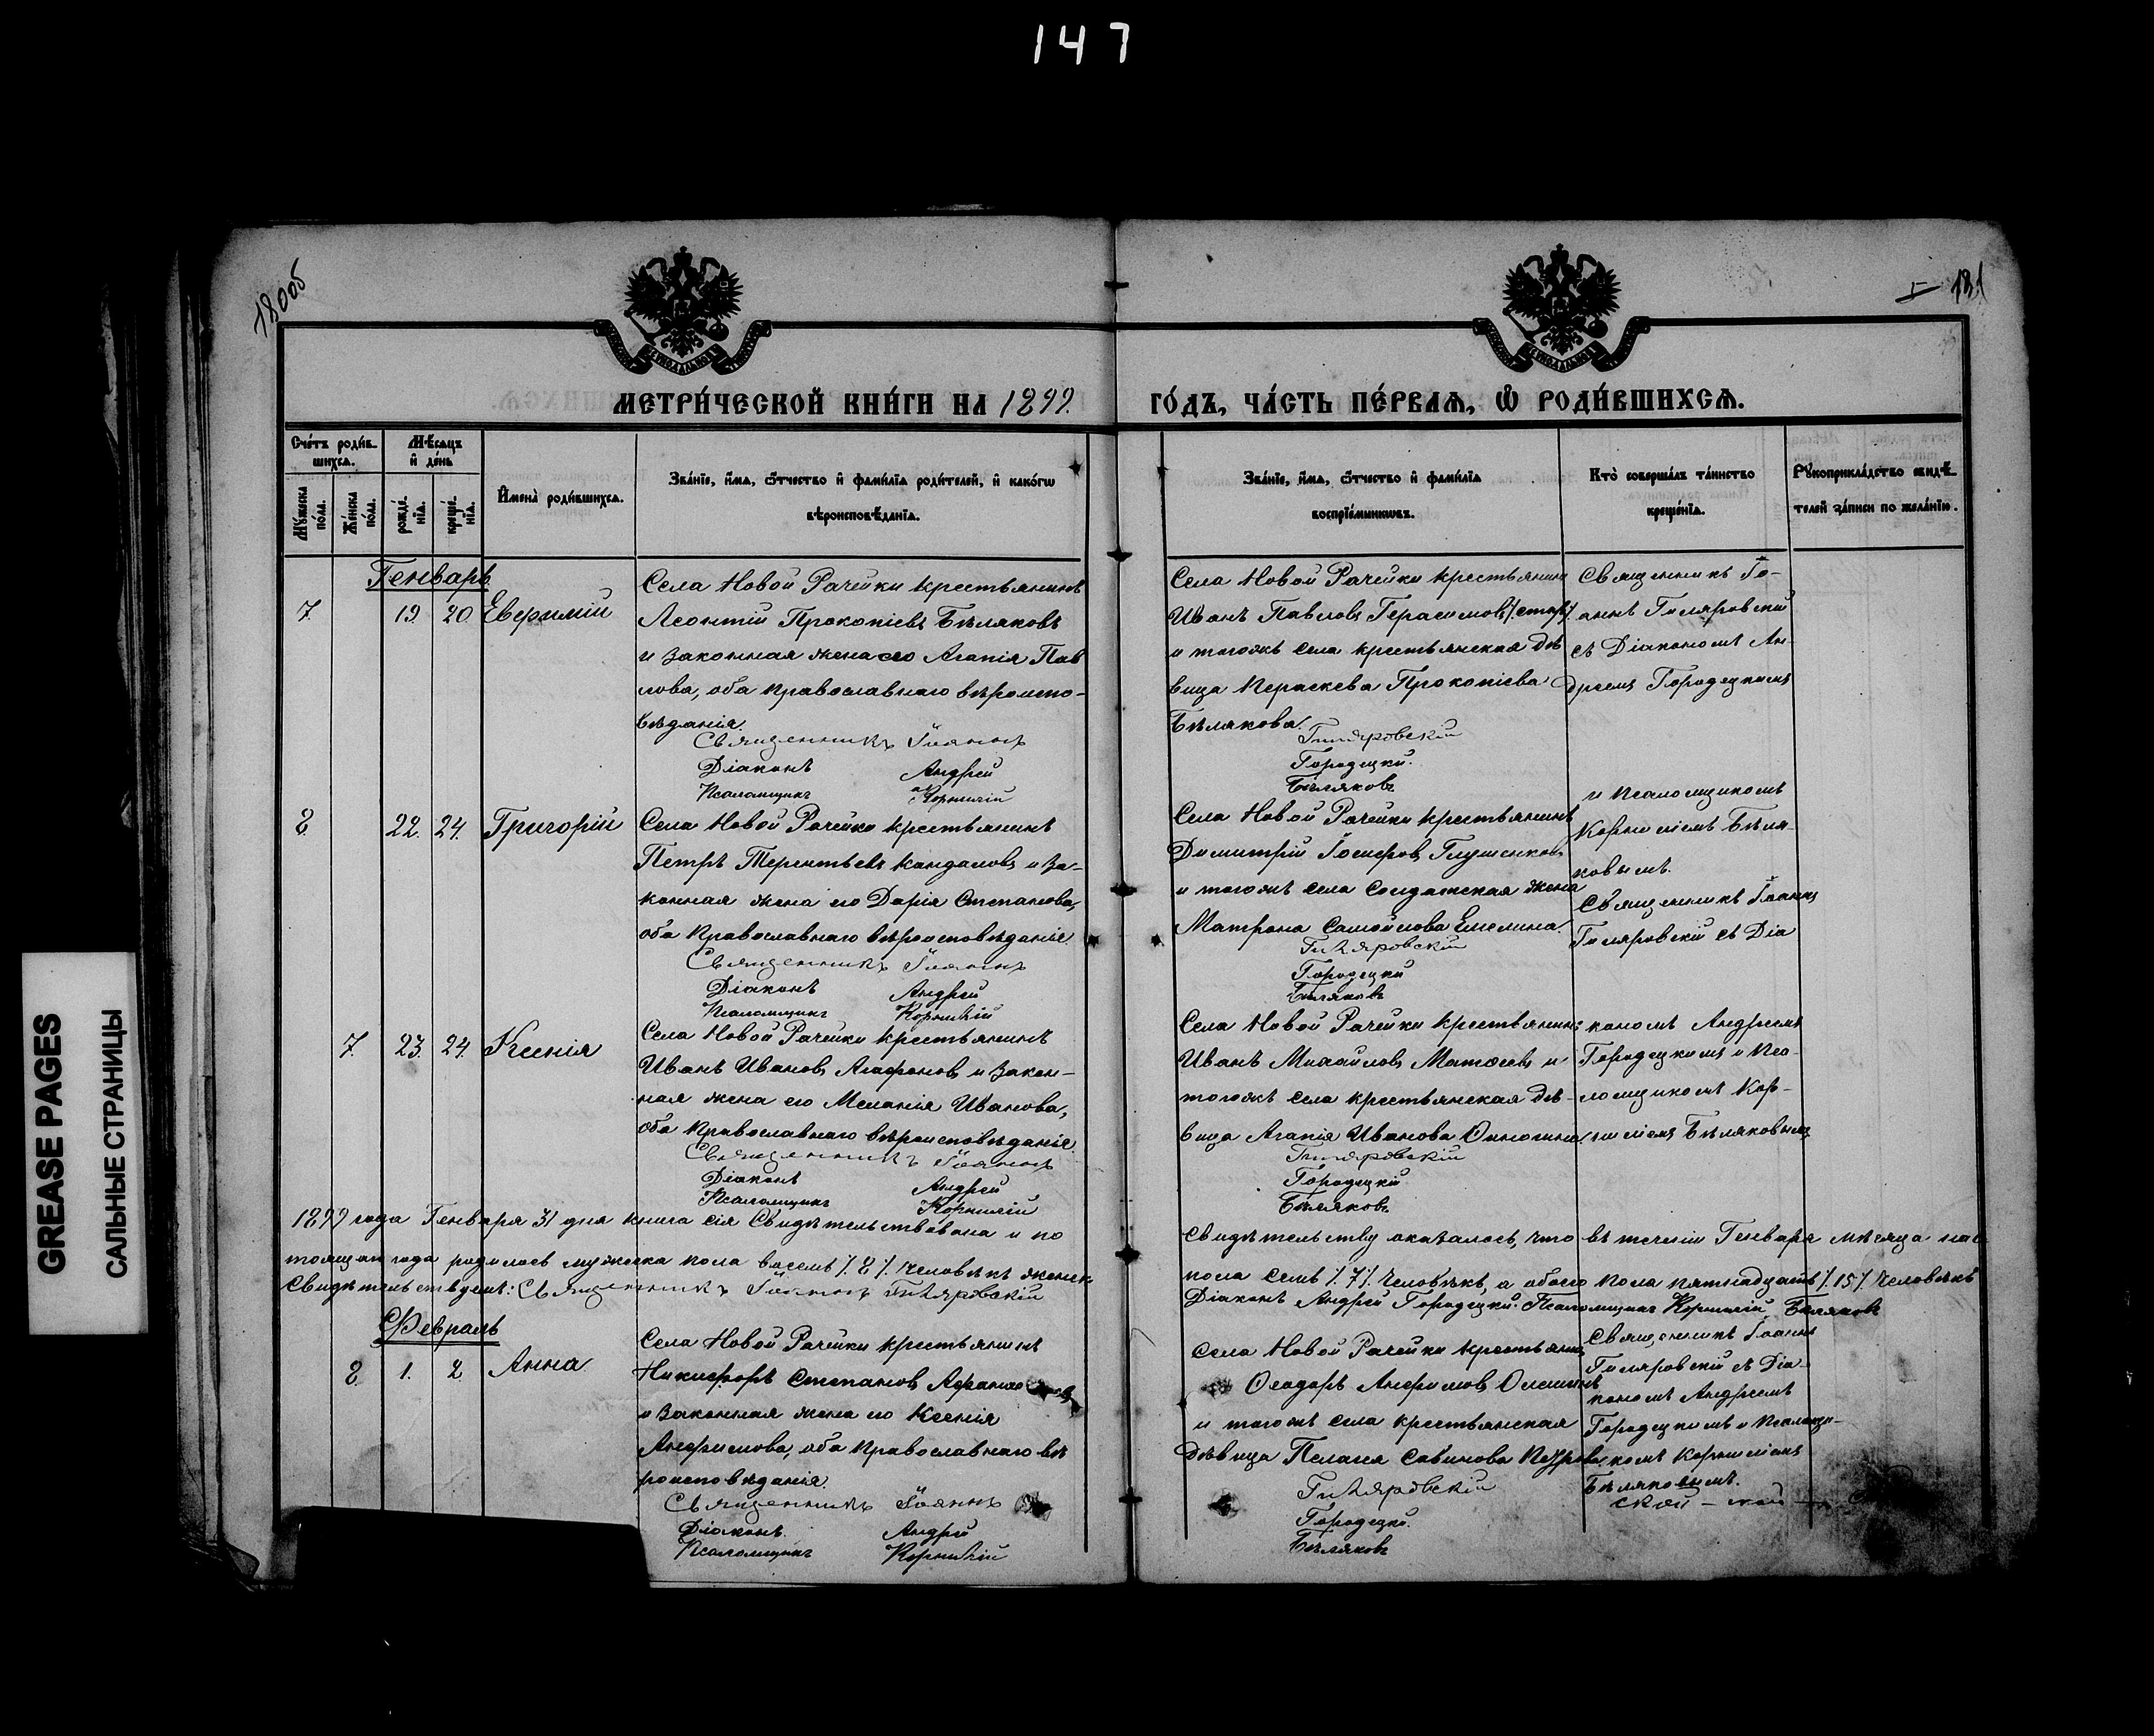 147
180об
181
МЕТРИ́ЧЕСКОЙ КНИ́ГИ НА 1899.
ГО́ДЪ, ЧА́СТЬ ПЕ́РВАѦ, Ѡ РОДИ́ВШИХСѦ.
Счéтъ роди́в-
шихсѧ.
Мѣ́сѧцъ
и̂ де́нь
Мꙋ́жеска
по́ла.
Же́нска
по́ла.
рожде́-
нїѧ.
креще́-
нїѧ.
И҆мена̀ роди́вшихсѧ.
Зва́нїе, и҆́мѧ, ѻ҆́тчество и҆ фами́лїѧ роди́телей, и҆ како́гѡ
вѣроисповѣ́данїѧ.
Зва́нїе, и҆́мѧ, ѻ҆́тчество и҆ фами́лїѧ
воспрїе́мниковъ.
Кто̀ соверша́лъ та́инство
креще́нїѧ.
Рꙋкоприкла́дство свидѣ́-
телей за́писи по жела́нїю.
Генварь
7. 19. 20. Евфимій
Села Новой Рачейки крестьянинъ
Леонтій Прокопіевъ Бѣляковъ
и законная жена его Агапія Пав
лова, оба православнаго вѣроиспо-
вѣданія.
Священникъ Іоаннъ
Діаконъ Андрей
Псаломщикъ Корнилій
Села Новой Рачейки крестьянинъ
Иванъ Павловъ Герасимовъ
и тогожъ села крестьянская дѣ
вица Параскева Прокопіева
Бѣлякова.
Гиляровскій
Городецкій.
Бѣляковъ
Священникъ Іо-
аннъ Гиляровскій
съ Діакономъ Ан-
дреемъ Городецкимъ
и псаломщикомъ
Корниліемъ Бѣля-
ковымъ.
8. 22. 24. Григорій
Села Новой Рачейки крестьянинъ
Петръ Терентьевъ Кандаловъ и за-
конная жена его Дарія Степанова,
оба православнаго вѣроисповѣданія.
Священникъ Іоаннъ
Діаконъ Андрей
Псаломщикъ Корнилій
Села Новой Рачейки крестьянинъ
Димитрій Іосифовъ Глушенковъ
и тогожъ села солдатская жена
Матрона Самойлова Емелина.
Гиляровскій
Городецкій
Бѣляковъ
Священникъ Іоаннъ
Гиляровскій съ Діа
кономъ Андреемъ
Городецкимъ и Пса-
ломщикомъ Кор-
ниліемъ Бѣляковымъ
7. 23. 24. Ксенія
Села Новой Рачейки крестьянинъ
Иванъ Ивановъ Агафоновъ и закон-
ная жена его Меланія Иванова,
оба православнаго вѣроисповѣданія.
Священникъ Іоаннъ
Діаконъ Андрей
Псаломщикъ Корнилій
Села Новой Рачейки крестьянинъ
Иванъ Михайловъ Матѳеевъ и
тогожъ села крестьянская дѣ-
вица Агапія Иванова
Гиляровскій
Городецкій
Бѣляковъ
1899 года Генваря 31 дня книга сія Свидѣтельствована и по
свидѣтельству оказалось, что въ теченіи Генваря мѣсяца нас
тоящаго года родилось мужеска пола восемь /.8/. человѣкъ женск
пола семь /.7/. человѣкъ, а обоего пола пятнадцать /.15/. человѣкъ
Свидѣтельствуемъ: Священникъ Іоаннъ Гиляровскій
Діаконъ Андрей Городецкій. Псаломщикъ Корнилій Бѣляковъ
Февраль
8. 1. 2. Анна
Села Новой Рачейки крестьянинъ
Никифоръ Степановъ
и законная жена его Ксенія
Анфимова, оба православнаго вѣ
роисповѣданія.
Священникъ Іоаннъ
Діаконъ. Андрей
Псаломщикъ Корнилій
Села Новой Рачейки крестьянинъ
Ѳеодоръ Анфимовъ
и тогожъ села крестьянская
дѣвица Пелагія Савинова
Гиляровскій
Городецкій.
Бѣляковъ
Священникъ Іоаннъ
Гиляровскій съ Діа-
кономъ Андреемъ
Городецкимъ и Псаломщи-
комъ Корниліемъ
Бѣляковымъ.
GREASE PAGES
САЛЬНЫЕ СТРАНИЦЫ